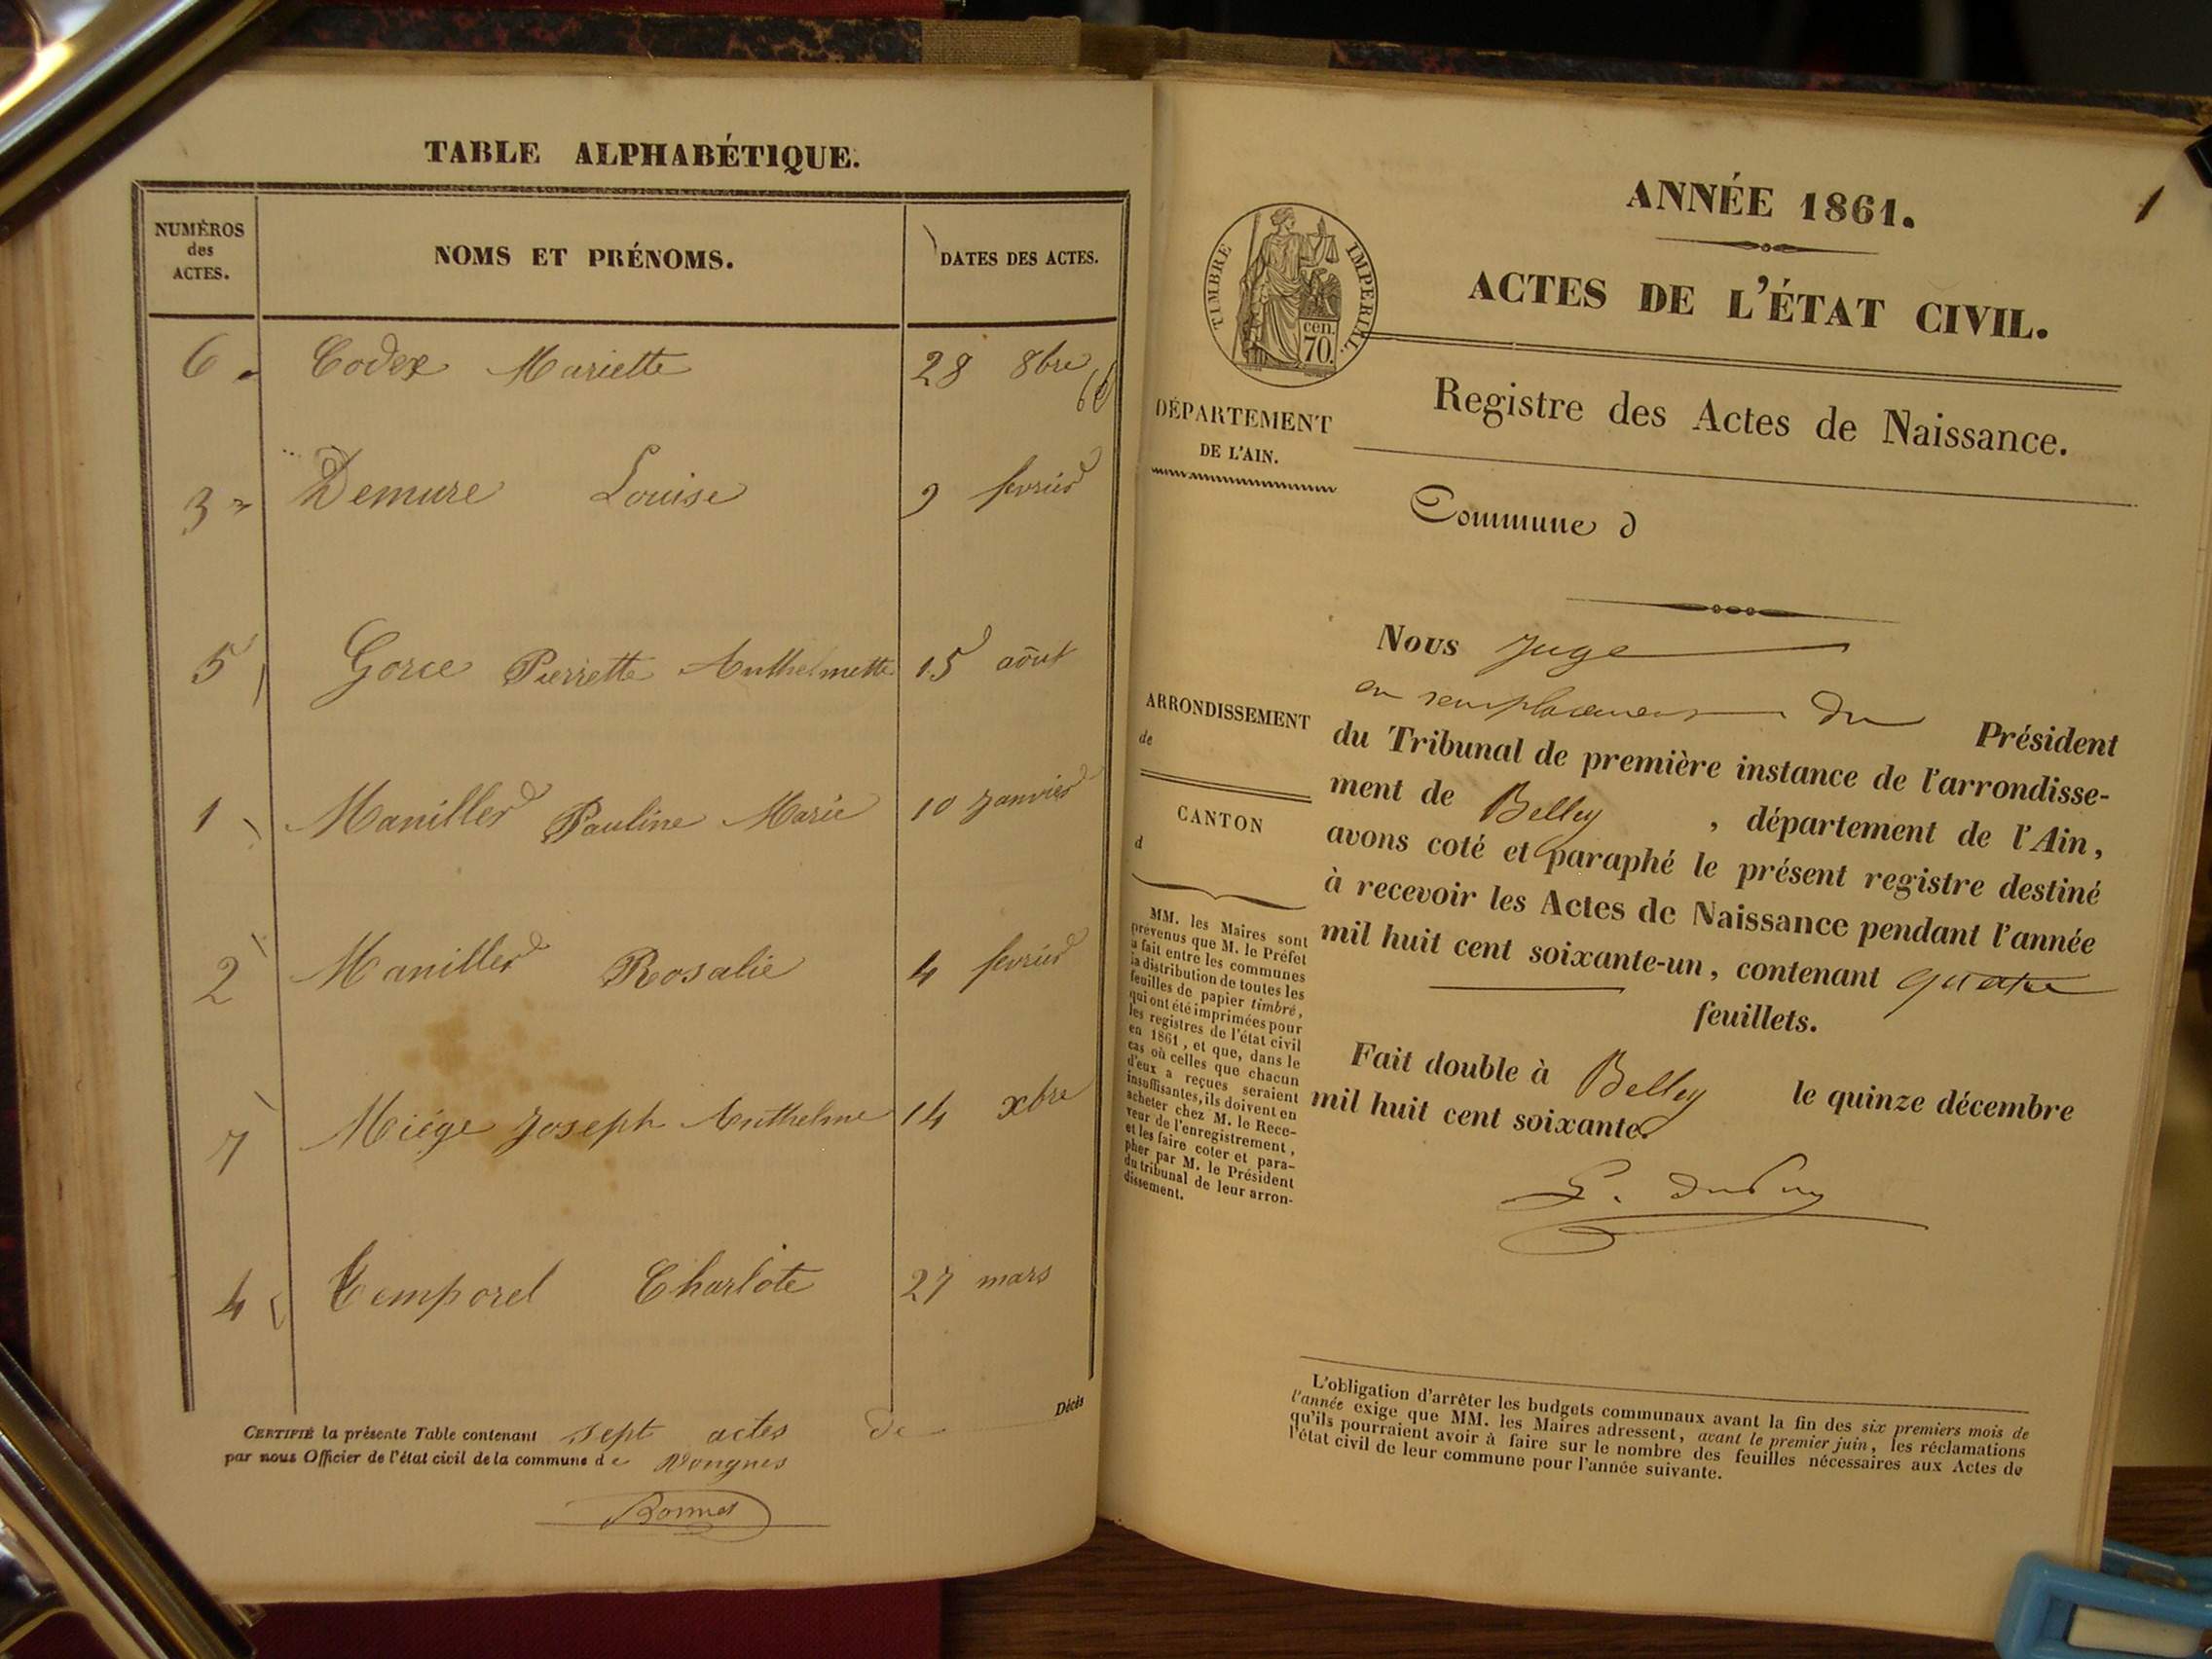 TABLE ALPHABÉTIQUE.
NUMÉROS
des
ACTES.
NOMS ET PRÉNOMS.
DATES DES ACTES.
6 Codex Mariette 28 8bre
60
3 Demure Louise 9 fevrier
5 Gorce Pierrette Anthelmette 15 août
1 Maniller Pauline Marie 10 Janvier
2 Maniller Rosalie 4 fevrier
7 Miége Joseph Anthelme 14 xbre
4 Temporel Charlote 27 mars
CERTIFIÉ la présente Table contenant sept actes de Décès
par nous Officier de l'état civil de la commune de Vongnes
Bonnet
1
ANNÉE 1861.
ACTES DE L'ÉTAT CIVIL.
TIMBRE IMPERIAL.
cen.
70.
Registre des Actes de Naissance.
DÉPARTEMENT
DE L'AIN.
Commune d
ARRONDISSEMENT
de
CANTON
d
MM. les Maires sont
prévenus que M. le Préfet
a fait entre les communes
la distribution de toutes les
feuilles de papier timbré,
qui ont été imprimées pour
les registres de l'état civil
en 1861, et que, dans le
cas où celles que chacun
d'eux a reçues seraient
insuffisantes, ils doivent en
acheter chez M. le Rece-
veur de l'enregistrement,
et les faire coter et para-
pher par M. le Président
du tribunal de leur arron-
dissement.
Nous Juge
en remplacement du Président
du Tribunal de première instance de l'arrondisse-
ment de Belley, département de l'Ain,
avons coté et paraphé le présent registre destiné
à recevoir les Actes de Naissance pendant l'année
mil huit cent soixante-un, contenant quatre
feuillets.
Fait double à Belley le quinze décembre
mil huit cent soixante.
L'obligation d'arrêter les budgets communaux avant la fin des six premiers mois de
l'année exige que MM. les Maires adressent, avant le premier juin, les réclamations
qu'ils pourraient avoir à faire sur le nombre des feuilles nécessaires aux Actes de
l'état civil de leur commune pour l'année suivante.